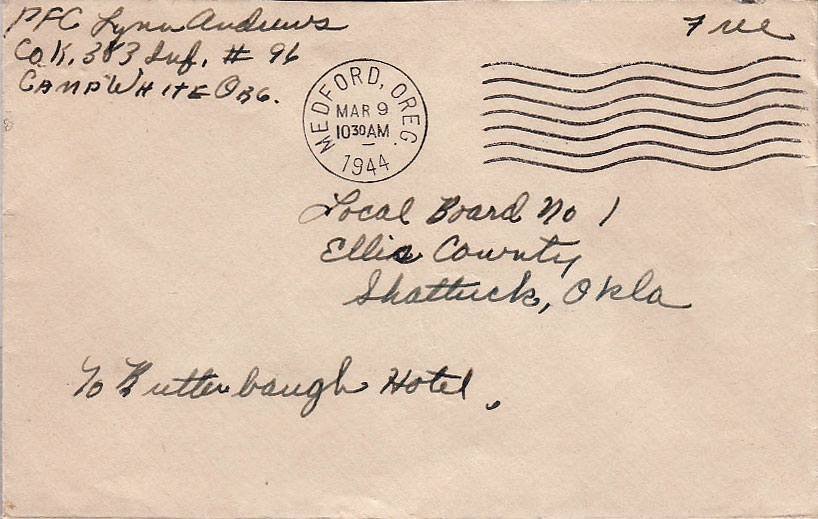 PFC Lynn Andrews
Co. K, 383 Inf. # 96
CAMP WHITE ORG.
Free
MEDFORD, OREG.
MAR 9
10 30 AM
1944
Local Board No 1
Ellis County
Shattuck, Okla
% Butterbaugh Hotel.